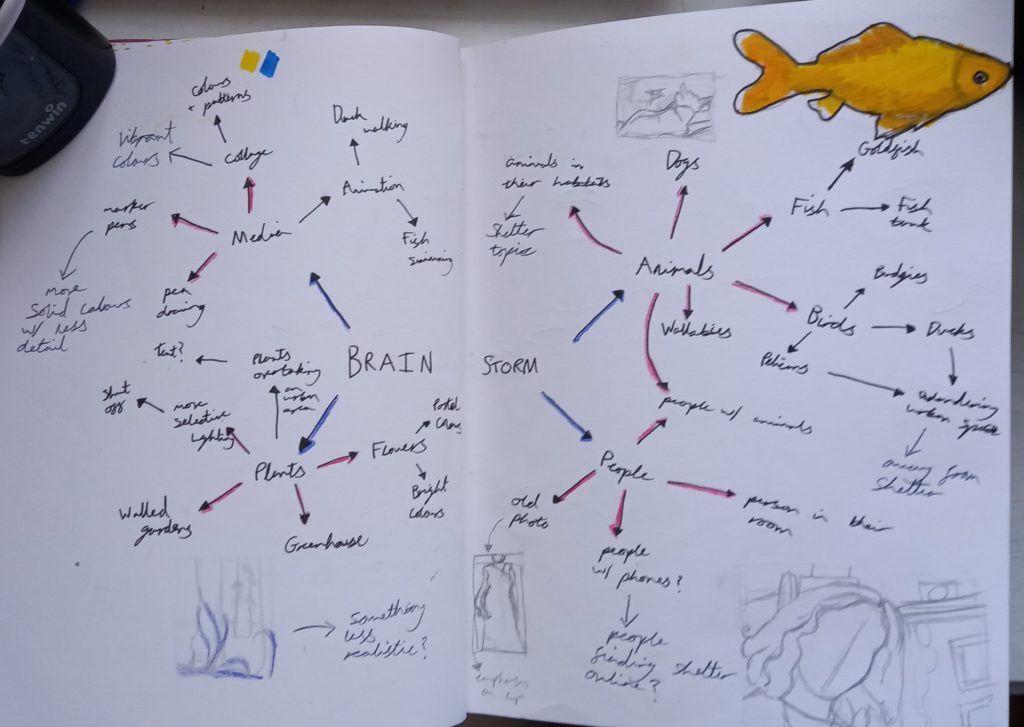 tenwin
colours
+ patterns
Vibrant
colours
Collage
Duck
walking
Animation
Fish
swimming
marker
pens
Media
pen
drawing
more
Solid colours
w/ less
detail
BRAIN
text?
Plants
overtaking
an
urban
area
Shut
off
more
selective
lighting
Plants
Flowers
Pastel
Colours
Bright
Colours
Walled
gardens
Greenhouse
Something
less
realistic?
STORM
animals in
their habitats
Shelter
topic
Dogs
Goldfish
Fish
Fish
tank
Animals
Budgies
Birds
Ducks
Pelicans
Wallabies
urban space
away from
Shelter
people w/ animals
People
old
photo
person in their
room
people
w/ phones?
people
finding shelter
online?
emphasis
on